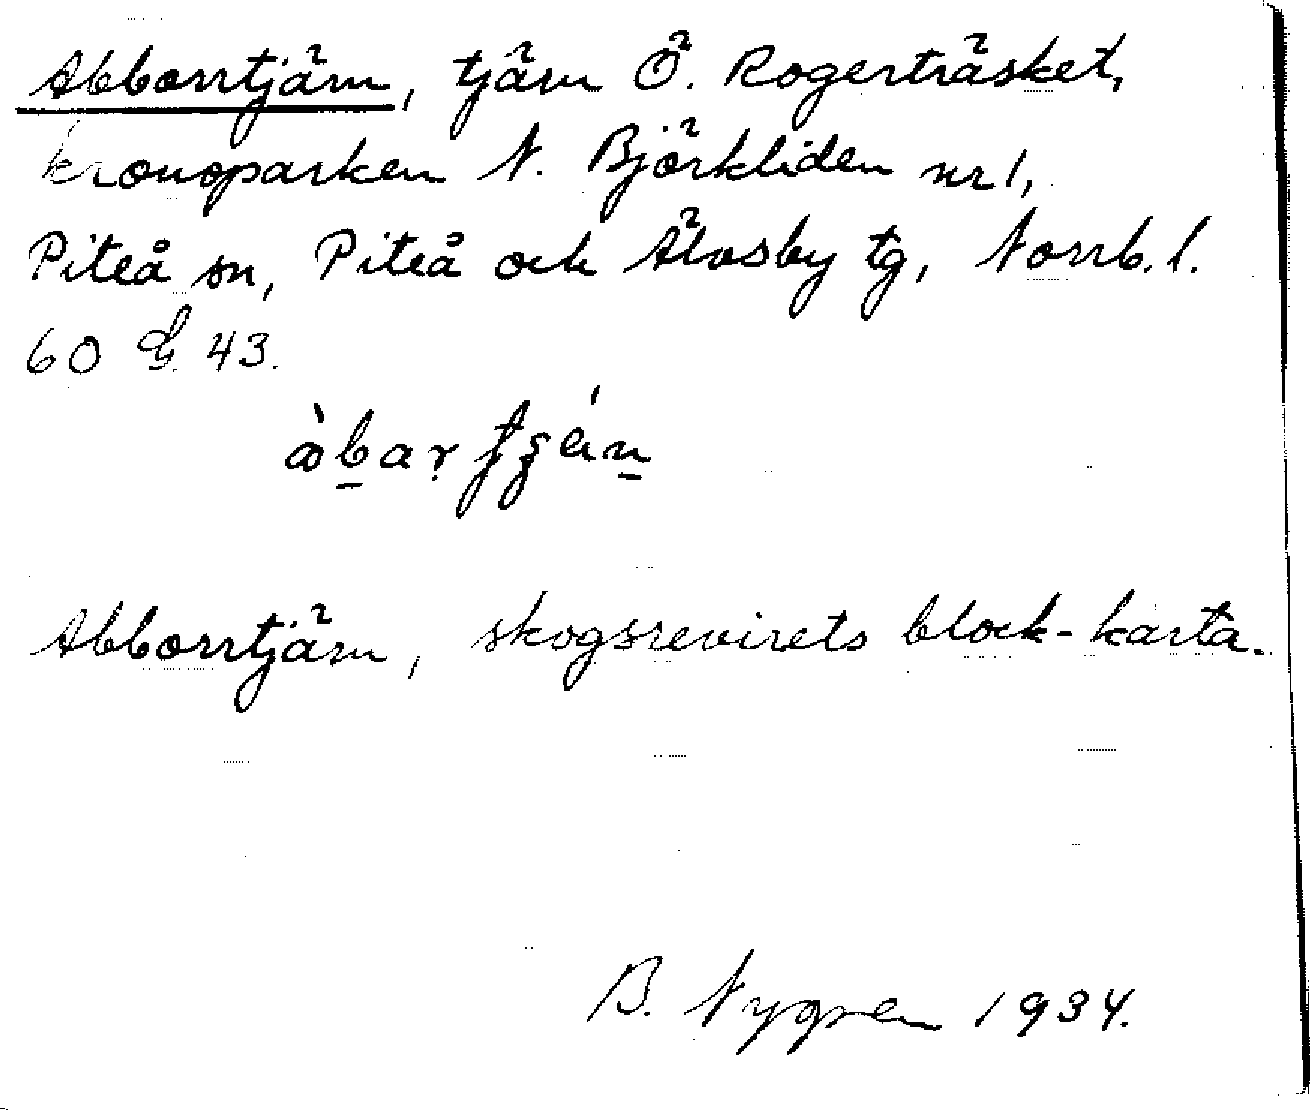 Abborrtjärn, tjärn Ö. Rogerträsket,
kronoparken N. Björkliden nr 1,
Piteå sn, Piteå och Älvsby tg, Norrb. l.
60 G. 43.
Abborrtjärn, skogsrevirets block-karta.
B. Nygren 1934.